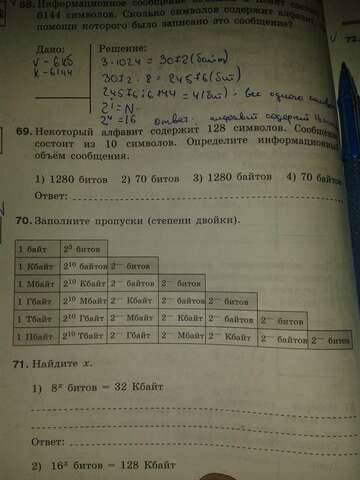 68. Информационное сообщение
6144 символов. Сколько символов содержит алфавит,
помощи которого было записано это сообщение?
Дано:
Решение:
3·1024 = 3072 (байт)
K - 6144
3072 · 8 = 24576 (бит)
24576 : 6144 = 4 (бит) - вес одного
2^i = N
2^4 = 16 ответ: алфавит содержит 16
69. Некоторый алфавит содержит 128 символов. Сообщение
состоит из 10 символов. Определите информационный
объём сообщения.
1) 1280 битов 2) 70 битов 3) 1280 байтов 4) 70 байтов
Ответ:
70. Заполните пропуски (степени двойки).
1 байт 2^3 битов
1 Кбайт 2^10 байтов 2^— битов
1 Мбайт 2^10 Кбайт 2^— байтов 2^— битов
1 Гбайт 2^10 Мбайт 2^— Кбайт 2^— байтов 2^— битов
1 Тбайт 2^10 Гбайт 2^— Мбайт 2^— Кбайт 2^— байтов 2^— битов
1 Пбайт 2^10 Тбайт 2^— Гбайт 2^— Мбайт 2^— Кбайт 2^— байтов 2^— битов
71. Найдите x.
1) 8^x битов = 32 Кбайт
Ответ:
2) 16^x битов = 128 Кбайт